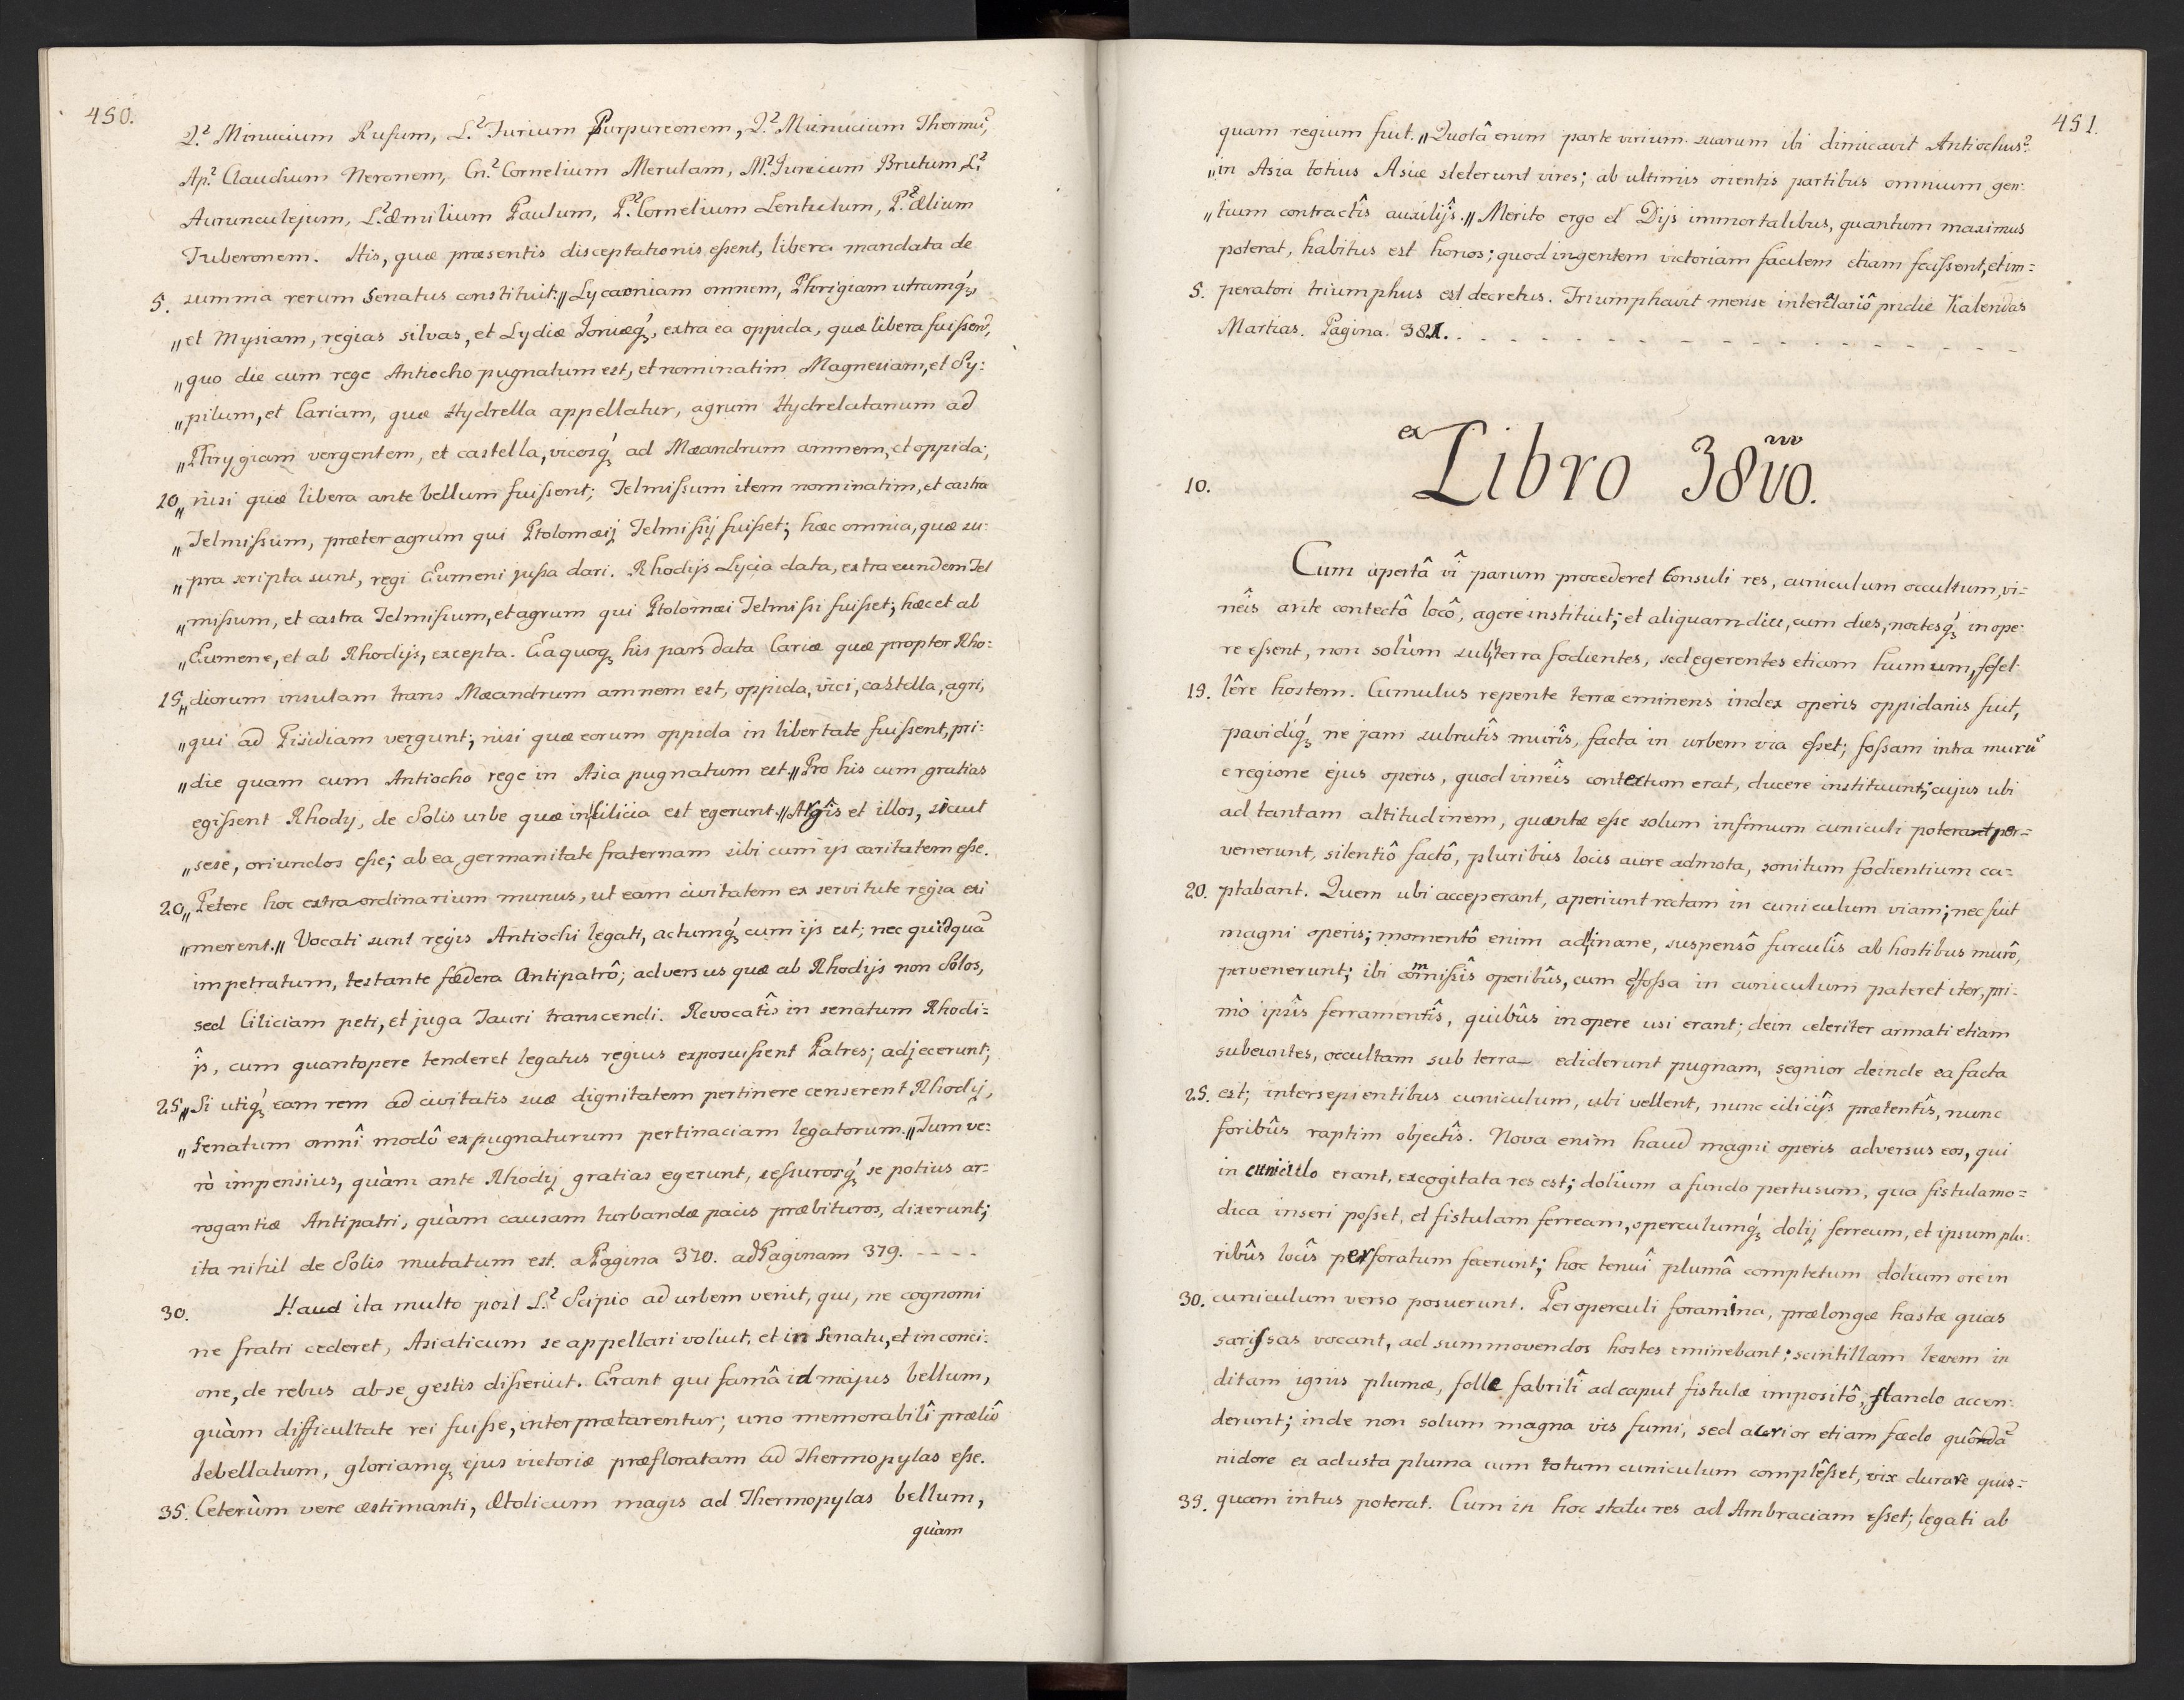 450.
Q.² Minucium Rufum, L.² Furium Purpureonem, Q.² Minucium Thermũ,
Ap.² Claudium Neronem, Cn.² Cornelium Merulam, M.² Junium Brutum, L.²
Aurunculejum, L.² Æmilium Paulum, P.² Cornelium Lentulum, P.² Ælium
Tuberonem. His, quæ præsentis disceptationis eſsent, libera mandata de
5. summa rerum Senatus constituit: „Lycaoniam omnem, Phrigiam utramq́;,
„et Mysiam, regias silvas, et Lydiæ Joniæq́;, extra ea oppida, quæ libera fuiſsent,
„quo die cum rege Antiocho pugnatum est, et nominatim Magnesiam, et Sy:
„pilum, et Cariam, quæ Hydrella appellatur, agrum Hydrelatanum ad
„Phrygiam vergentem, et castella, vicosq́; ad Mæandrum amnem, et oppida;
10„ nisi quæ libera ante bellum fuiſsent; Telmiſsum item nominatim, et castra
„Telmiſsum, præter agrum qui Ptolomæij Telmiſsij fuiſset; hæc omnia, quæ su:
„pra scripta sunt, regi Eumeni juſsa dari. Rhodijs Lycia data, extra eundem Tel
„miſsum, et castra Telmiſsium, et agrum qui Ptolomæi Telmiſsi fuiſset; hæc et ab
„Eumene, et ab Rhodijs, excepta. Ea quoq; his pars data Cariæ quæ propior Rho:
15„diorum insulam trans Mæandrum amnem est, oppida, vici, castella, agri,
„qui ad Pisidiam vergunt; nisi quæ eorum oppida in libertate fuiſsent, pri:
„die quam cum Antiocho rege in Asia pugnatum est.„ Pro his cum gratias
egiſsent Rhodij, de Solis urbe quæ in Cilicia est egerunt. „Argîs et illos, sicut
„sese, oriundos eſse; ab ea germanitate fraternam sibi cum ijs caritatem eſse.
20„ Petere hoc extra ordinarium munus, ut eam civitatem ex servitute regia exi
„merent.„ Vocati sunt regis Antiochi legati, actumq́; cum ijs est; nec quidquã
impetratum, testante fœdera Antipatrô; adversus quæ ab Rhodijs non Solos,
sed Ciliciam peti, et juga Tauri transcendi. Revocatîs in senatum Rhodi=
îjs, cum quantopere tenderet legatus regius exposuiſsent Patres; adjecerunt;
25„Si utiq́; eam rem ad civitatis suæ dignitatem pertinere censerent Rhodij,
„Senatum omnî modô expugnaturum pertinaciam legatorum.„ Tum ve:
rò impensius, quàm ante Rhodij gratias egerunt, ceſsurosq́; se potius ar:
rogantiæ Antipatri, quàm causam turbandæ pacis præbituros, dixerunt;
ita nihil de Solis mutatum est. a Pagina 370. ad Paginam 379. - - - -
30. Haud ita multo post L.² Scipio ad urbem venit, qui, ne cognomi
ne fratri cederet, Asiaticum se appellari voluit, et in Senatu, et in conci:
one, de rebus ab se gestis diſseruit. Erant qui famâ id majus bellum,
quàm difficultate rei fuiſse, interprætarentur; uno memorabilî præliô
debellatum, gloriamq; ejus victoriæ præfloratam ad Thermopylas eſse.
35. Ceterùm vere æstimanti, Ætolicum magis ad Thermopylas bellum,
quàm
451.
quam regium fuit. „Quotâ enim parte virium suarum ibi dimicavit Antiochus?
„in Asia totius Asiæ steterunt vires; ab ultimis orientis partibus omnium gen:
„tium contractîs auxilijs.„ Merito ergo et Dijs immortalibus, quantum maximus
poterat, habitus est honos; quod ingentem victoriam facilem etiam feciſsent, et im=
5. peratori triumphus est decretus. Triumphavit mense interclariô pridie Kalendas
Martias. Pagina. 381. . - - - - - - - - - - - - - - - -
10. ex Libro 38vo. vo
Cum apertâ vî parum procederet Consuli res, cuniculum occultum, vi=
neîs ante contectô locô, agere instituit; et aliquamdiu, cum dies, noctesq́; in ope:
re eſsent, non solùm sub terra fodientes, sed egerentes etiam humum, fefel:
15. lêre hostem. Cumulus repente terræ eminens index operis oppidanis fuit,
pavidiq́; ne jam subrutîs murîs, facta in urbem via eſset; foſsam intra murũ
e regione ejus operis, quod vineîs contectum erat, ducere instituunt; cujus ubi
ad tantam altitudinem, quantæ eſse solum infimum cuniculi poterat per=
venerunt, silentiô factô, pluribus locis aure admota, sonitum fodientium ca=
20. ptabant. Quem ubi acceperant, aperiunt rectam in cuniculum viam; nec fuit
magni operis; momentô enim ad inane, suspensô furculîs ab hostibus murô,
pervenerunt; ibi com̃iſsîs operibûs, cum e foſsa in cuniculum pateret iter, pri:
mò ipsîs ferramentîs, quibûs in opere usi erant; dein celeriter armati etiam
subeuntes, occultam sub terra ediderunt pugnam, segnior deinde ea facta
25. est; intersepientibus cuniculum, ubi vellent, nunc ciliciîs prætentîs, nunc
foribûs raptim objectîs. Nova enim haud magni operis adversus eos, qui
in cuniculo erant, excogitata res est; dolium a fundo pertusum, qua fistula mo=
dica inseri poſset, et fistulam ferream, operculumq́; dolij ferreum, et ipsum plu:
ribûs locîs perforatum fecerunt; hoc tenuî plumâ completum dolium ore in
30. cuniculum verso posuerunt. Per operculi foramina, prælongæ hastæ quas
sariſsas vocant, ad summovendos hostes eminebant; scintillam levem in
ditam ignis plumæ, folle fabrilî ad caput fistulæ impositô, flando accen:
derunt; inde non solum magna vis fumi, sed acrior etiam fœdo quôdã
nidore ex adusta pluma cum totum cuniculum complêſset, vix durare quis=
35. quam intus poterat. Cum in hoc statu res ad Ambraciam eſset; legati ab